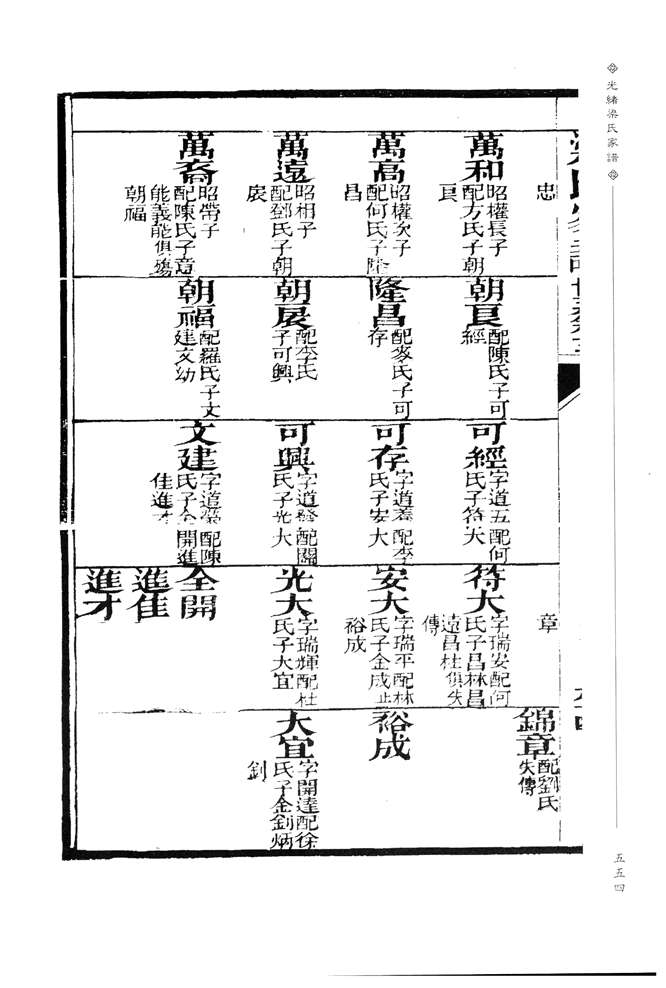 光緒梁氏家譜
五五四
忠
萬和
昭權長子
配方氏子朝
良
萬高
昭權次子
配何氏子隆
昌
萬遠
昭相子
配鄧氏子朝
展
萬裔
昭帶子
配陳氏子意
能義能俱殤
朝福
朝良
配陳氏子可
經
隆昌
配麥氏子可
存
朝展
配李氏
子可興
朝福
配羅氏子文
建文幼
可經
字道五配何
氏子符大
可存
字道養配李
氏子安大
可興
字道發配關
氏子光大
文建
配陳
氏子全開進
佳進才
章
符大
字瑞安配何
氏子昌林昌
遠昌杜俱失
傳
安大
字瑞平配林
氏子金成
裕成
光大
字瑞輝配杜
氏子大宜
全開
進佳
進才
錦章
配劉氏
失傳
裕成
大宜
字開達配徐
氏子金釗炳
釗